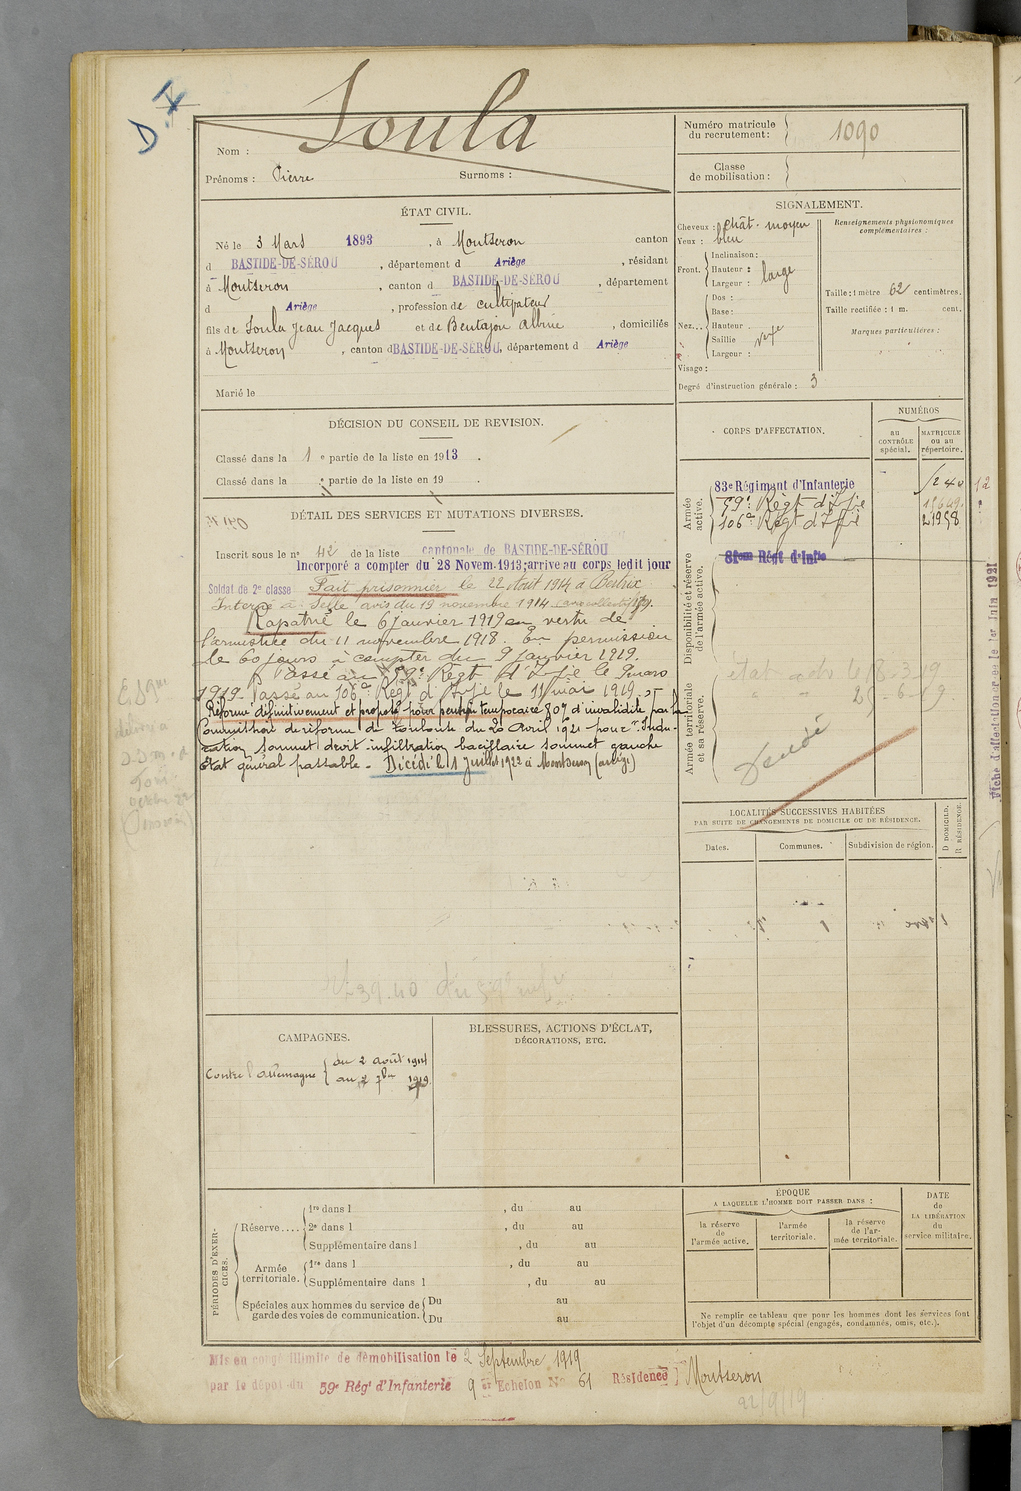 D. X
Nom : Soula
Prénoms : Pierre Surnoms :
Numéro matricule
du recrutement : 1090
Classe
de mobilisation :
ÉTAT CIVIL.
Né le 3 Mars 1893, à Montseron canton
d BASTIDE-DE-SÉROU, département d Ariège, résidant
à Montseron, canton d BASTIDE-DE-SÉROU, département
d Ariège, profession de cultivateur
fils de Soula Jean Jacques et de Bentajou Albine, domiciliés
à Montseron, canton d BASTIDE-DE-SÉROU, département d Ariège
Marié le
SIGNALEMENT.
Cheveux : chât. moyen
Yeux : bleu
Front. Inclinaison :
Hauteur :
Largeur : large
Nez... Dos :
Base :
Hauteur
Saillie
Largeur :
Visage :
Degré d'instruction générale : 3
Renseignements physionomiques
complémentaires :
Taille : 1 mètre 62 centimètres.
Taille rectifiée : 1 m. cent.
Marques particulières :
DÉCISION DU CONSEIL DE REVISION.
Classé dans la 1 e partie de la liste en 1913.
Classé dans la e partie de la liste en 19 .
DÉTAIL DES SERVICES ET MUTATIONS DIVERSES.
Inscrit sous le n° 42 de la liste cantonale de BASTIDE-DE-SÉROU
Incorporé a compter du 28 Novem. 1913; arrive au corps ledit jour
Soldat de 2e classe Fait prisonnier le 22 Août 1914 à Bertrix
Interné à Selle avis du 19 novembre 1914
Rapatrié le 6 Janvier 1919 en vertu de
l'armistice du 11 novembre 1918. En permission
de 60 jours à compter du 9 Janvier 1919.
Passé au 59e Régt d'Infie le mars
1919. Passé au 106e Régt d'Infie le 11 mai 1919.
Réformé définitivement et proposé pour pension temporaire 30% d'invalidité par la
Commission de réforme de Toulouse du 20 Avril 1921 pour "Indu-
ration sommet droit infiltration bacillaire sommet gauche
État général passable. Décédé le 1 Juillet 1922 à Montseron (ariège)
CORPS D'AFFECTATION.
NUMÉROS
au
CONTRÔLE
spécial.
MATRICULE
ou au
répertoire.
Armée
active.
83e Régiment d'Infanterie
59e Régt d'Infie
106e Régt d'Infie
21958
Disponibilité et réserve
de l'armée active.
Régt d'Infie
Armée territoriale
et sa réserve.
Décédé
Fiche d'affectation créée le 1er Juin 1921
LOCALITÉS SUCCESSIVES HABITÉES
PAR SUITE DE CHANGEMENTS DE DOMICILE OU DE RÉSIDENCE.
Dates.
Communes.
Subdivision de région.
D DOMICILE.
R RÉSIDENCE.
CAMPAGNES.
Contre l'allemagne du 2 août 1914
au 2 7bre 1919
BLESSURES, ACTIONS D'ÉCLAT,
DÉCORATIONS, ETC.
PÉRIODES D'EXER-
CICES.
Réserve.... 1re dans l , du au
2e dans l , du au
Supplémentaire dans l , du au
Armée
territoriale. 1re dans l , du au
Supplémentaire dans l , du au
Spéciales aux hommes du service de
garde des voies de communication. Du au
Du au
ÉPOQUE
A LAQUELLE L'HOMME DOIT PASSER DANS :
la réserve
de
l'armée active.
l'armée
territoriale.
la réserve
de l'ar-
mée territoriale.
DATE
de
LA LIBÉRATION
du
service militaire.
Ne remplir ce tableau que pour les hommes dont les services font
l'objet d'un décompte spécial (engagés, condamnés, omis, etc.).
Mis en congé illimité de démobilisation le 2 Septembre 1919
par le dépôt du 59e Régt d'Infanterie 9e Echelon N° 61 Résidence Montseron
22/9/19